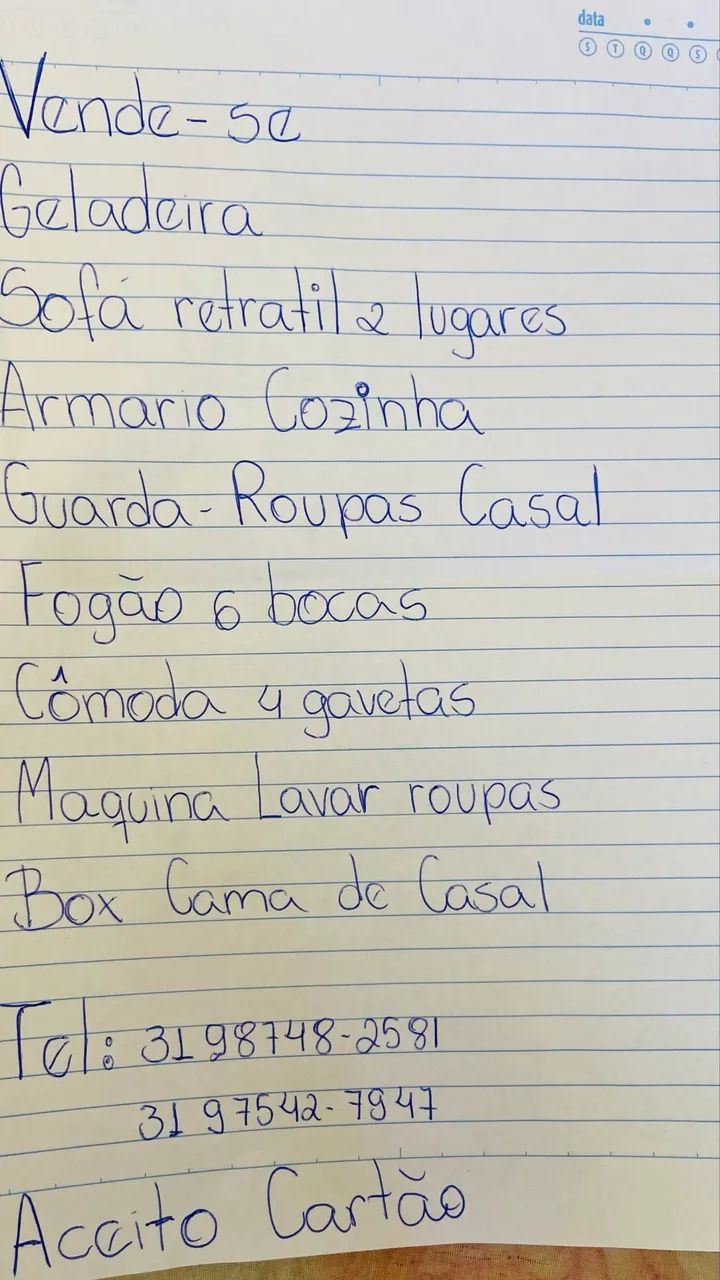 data
S T Q Q S
Vende-se
Geladeira
Sofá retratil 2 lugares
Armario Cozinha
Guarda-Roupas Casal
Fogão 6 bocas
Cômoda 4 gavetas
Maquina Lavar roupas
Box Cama de Casal
Tel: 31 98748-2581
31 97542-7947
Aceito Cartão